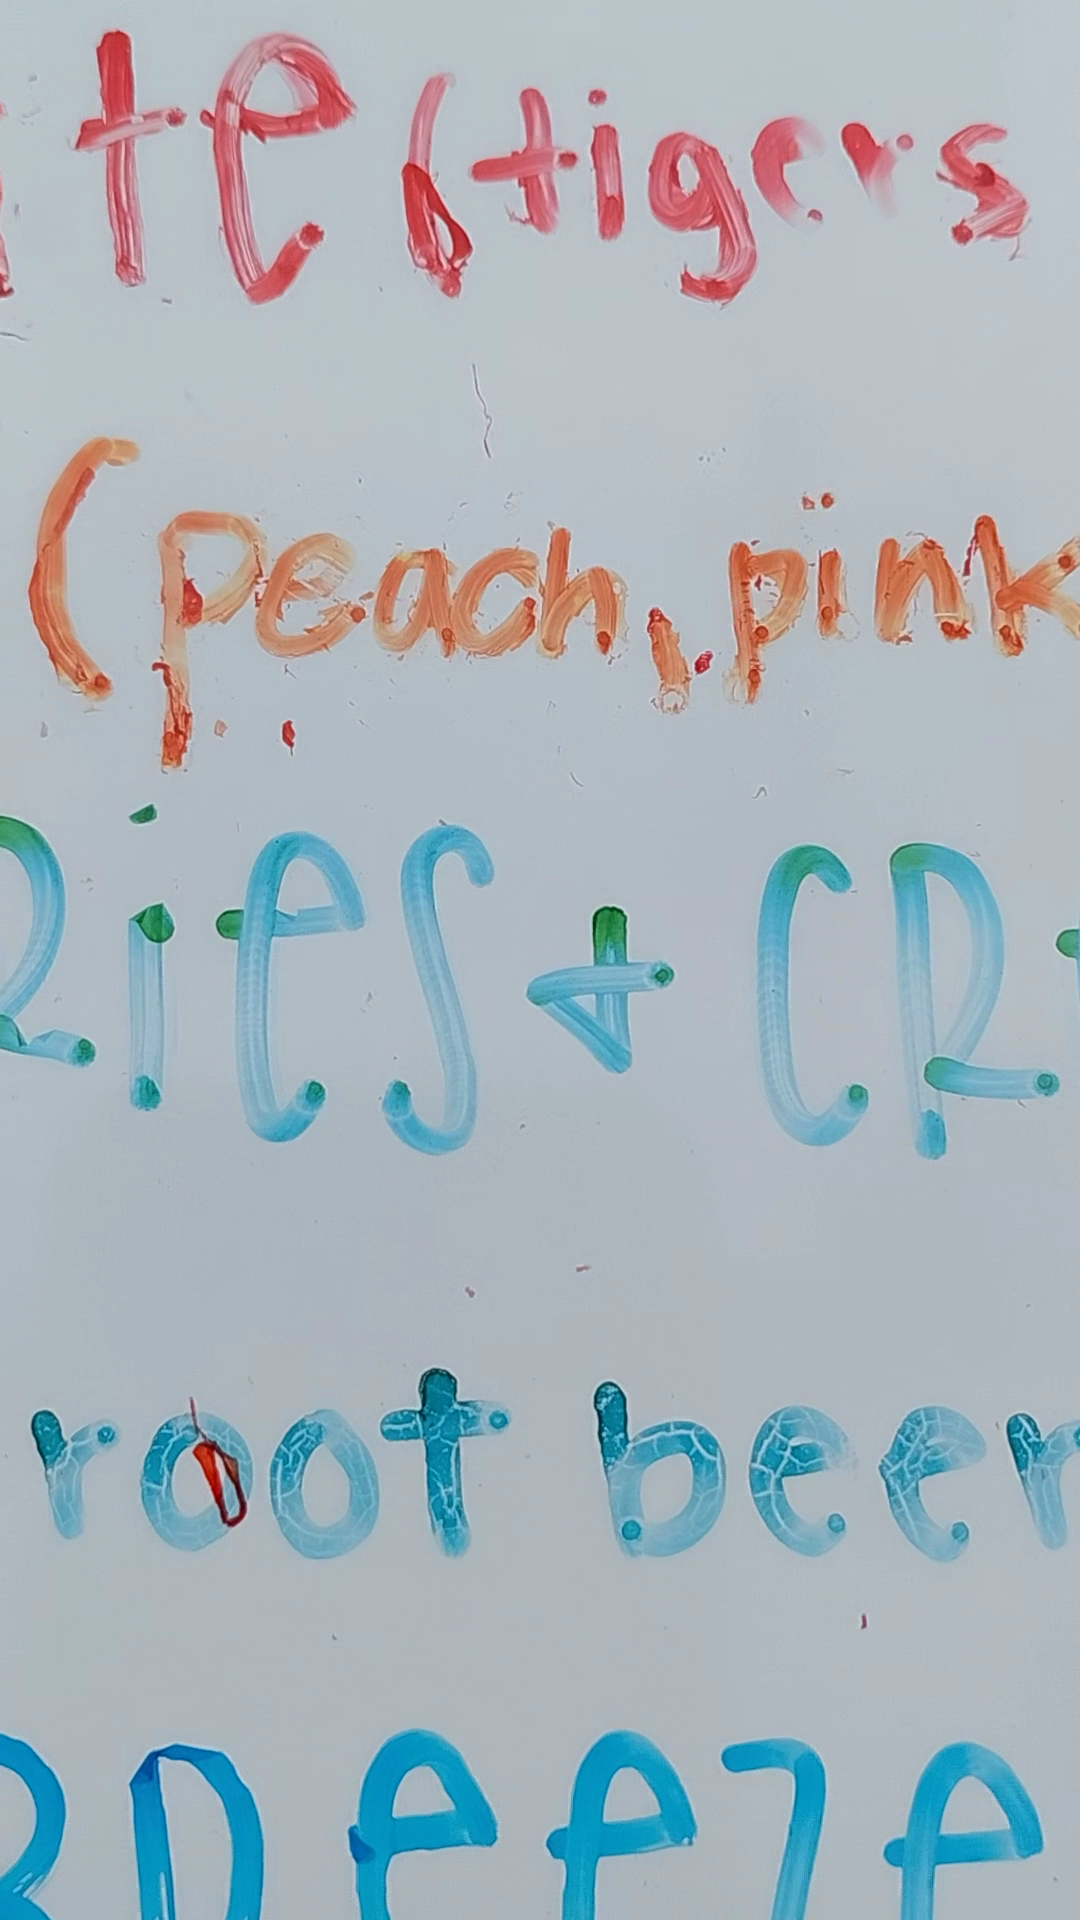 te (tigers
(peach, pink
Ries & CR
root beer
BReeze